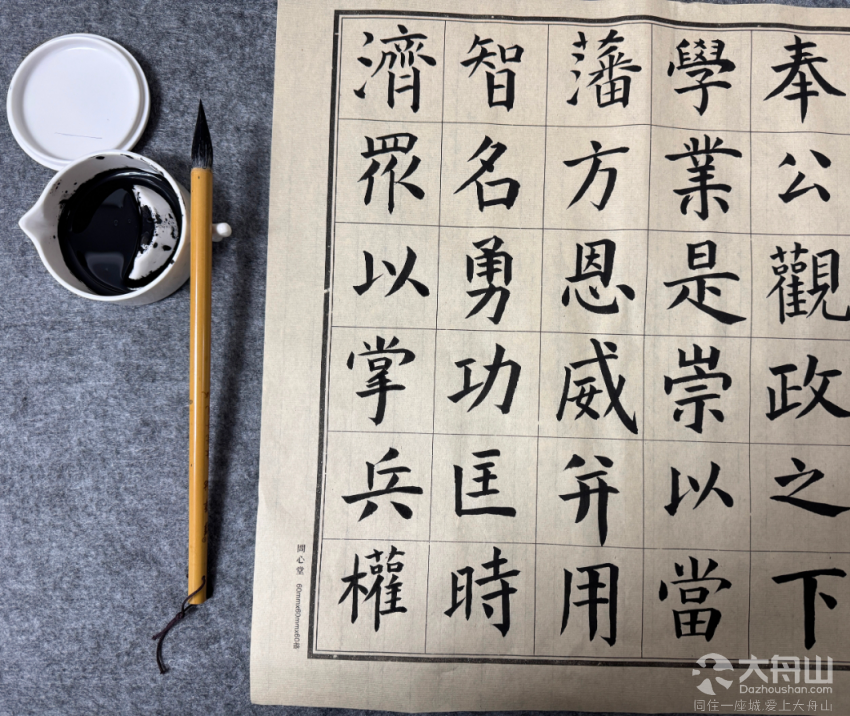 奉公觀政之下
學業是崇以當
藩方恩威并用
智名勇功匡時
濟眾以掌兵權
問心堂 60mmx60mmx60格
大舟山
Dazhoushan.com
同住一座城 爱上大舟山